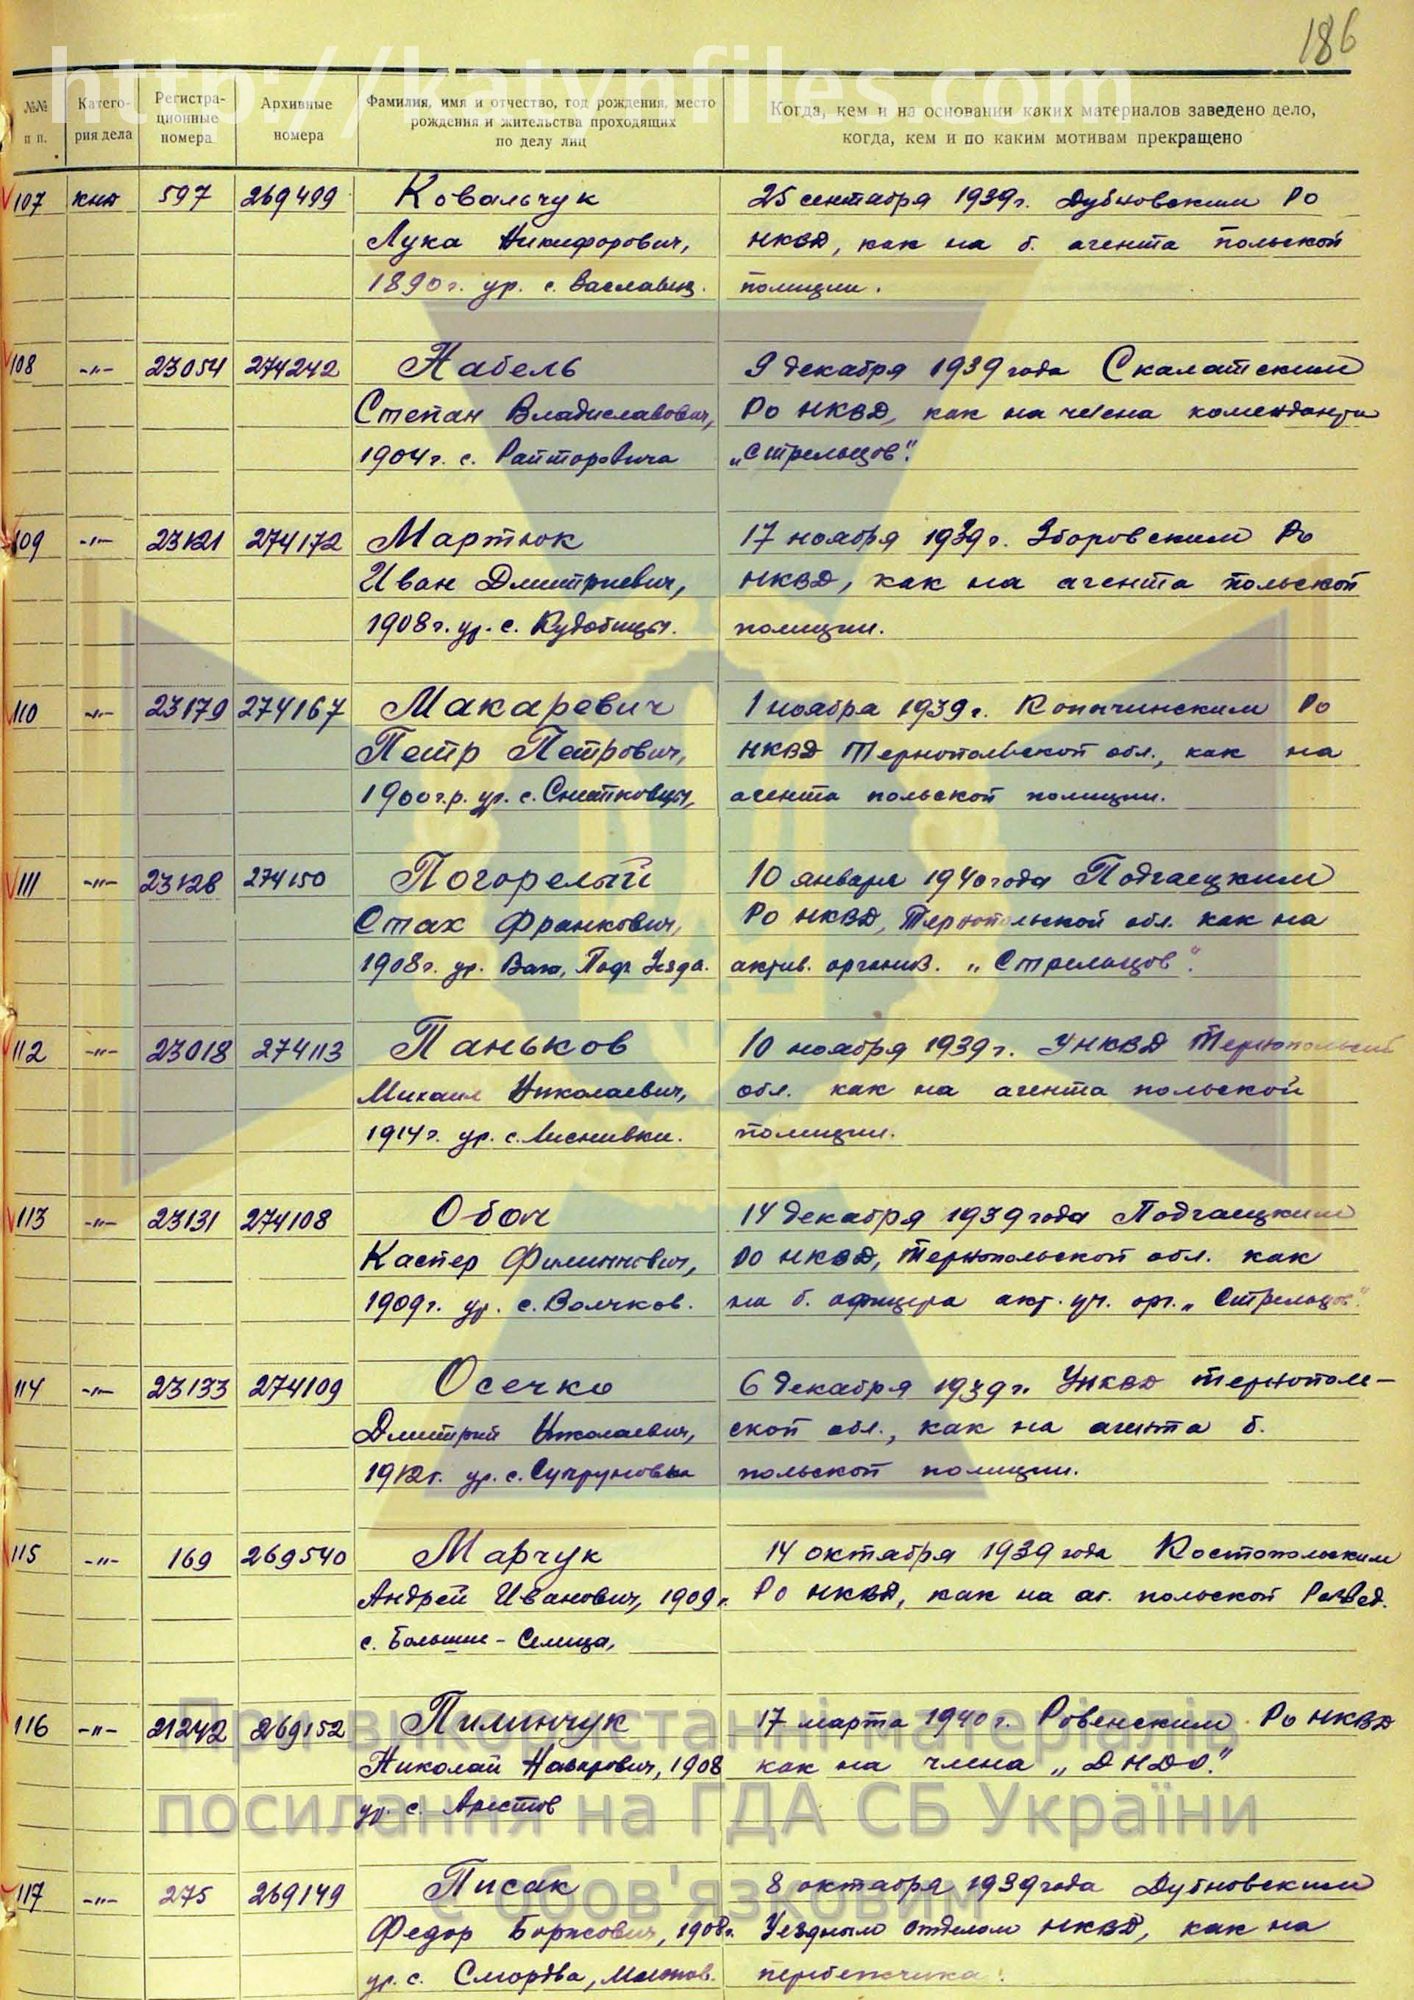 186
http://katynfiles.com
№№ п п.
Катего-
рия дела
Регистра-
ционные
номера
Архивные
номера
Фамилия, имя и отчество, год рождения, место
рождения и жительства проходящих
по делу лиц
Когда, кем и на основании каких материалов заведено дело,
когда, кем и по каким мотивам прекращено
107 597 269499 Ковальчук 25 сентября 1939г. Дубновским РО
Лука Никифорович, НКВД, как на б. агента польской
1890г. ур. с. полиции.
108 -"- 23054 274242 Набель 9 декабря 1939 года Скалатским
Степан Владиславович, РО НКВД, как на члена
1904г. с. "Стрельцов".
109 -"- 23121 274172 Мартюк 17 ноября 1939г. Зборовским РО
Иван Дмитриевич, НКВД, как на агента польской
1908г. ур. с. Кудобинцы. полиции.
110 -"- 23179 274167 Макаревич 1 ноября 1939г. Копычинским РО
Петр Петрович, НКВД Тернопольской обл., как на
1900г.р. ур. с. агента польской полиции.
111 -"- 23128 274150 Погорелый 10 января 1940 года Подгаецким
Стах Франкович, РО НКВД, Тернопольской обл. как на
1908г. ур. актив. "Стрельцов".
112 -"- 23018 274113 Паньков 10 ноября 1939г. УНКВД Тернопольской
Михаил Николаевич, обл. как на агента польской
1914г. ур. с. полиции.
113 -"- 23131 274108 14 декабря 1939 года Подгаецким
Каспер Филиппович, РО НКВД, Тернопольской обл. как
1909г. ур. с. Волчков. на б. офицера акт. уч. орг. "Стрельцов"
114 -"- 23133 274109 Осечко 6 декабря 1939г. УНКВД Тернополь-
Дмитрий Николаевич, ской обл., как на агента б.
1912г. ур. с. Супруновка польской полиции.
115 -"- 169 269540 Марчук 14 октября 1939 года Костопольским
Андрей Иванович, 1909г. РО НКВД, как на аг. польской развед.
с. Большие-
116 -"- 21242 269152 Пилинчук 17 марта 1940г. Ровенским РО НКВД
Николай Назарович, 1908 как на члена
ур. с. Арестов
117 -"- 275 269149 Писак 8 октября 1939 года Дубновским
Федор Борисович, 1908г. Уездным отделом НКВД, как на
ур. с. Сморdва, перебежчика.
При використанні матеріалів
посилання на ГДА СБ України
є обов'язковим